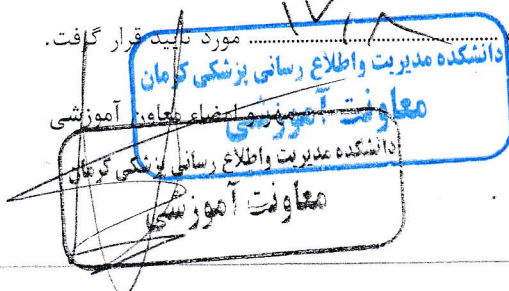 مورد تایید قرار گرفت.
دانشکده مدیریت واطلاع رسانی پزشکی کرمان
معاونت آموزشی
مهر و امضاء معاون آموزشی
دانشکده مدیریت واطلاع رسانی پزشکی کرمان
معاونت آموزشی